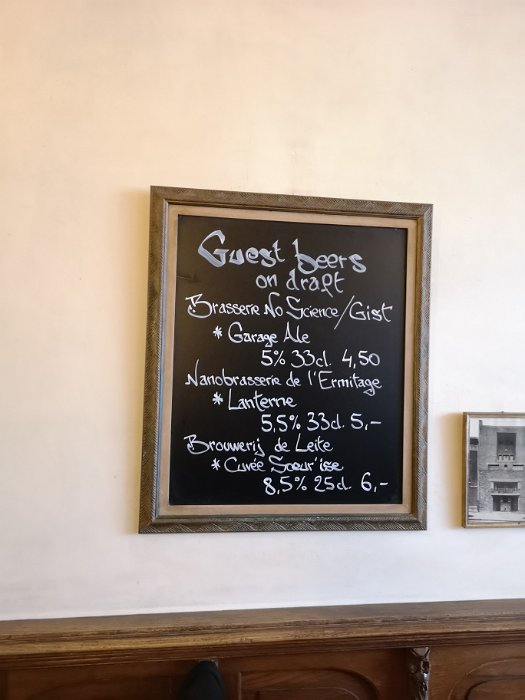 Guest beers
on draft
Brasserie No Science/Gist
* Garage Ale
5% 33cl. 4,50
Nanobrasserie de l'Ermitage
* Lanterne
5,5% 33cl. 5,-
Brouwerij de Leite
* Cuvée Soeur'ise
8,5% 25cl. 6,-